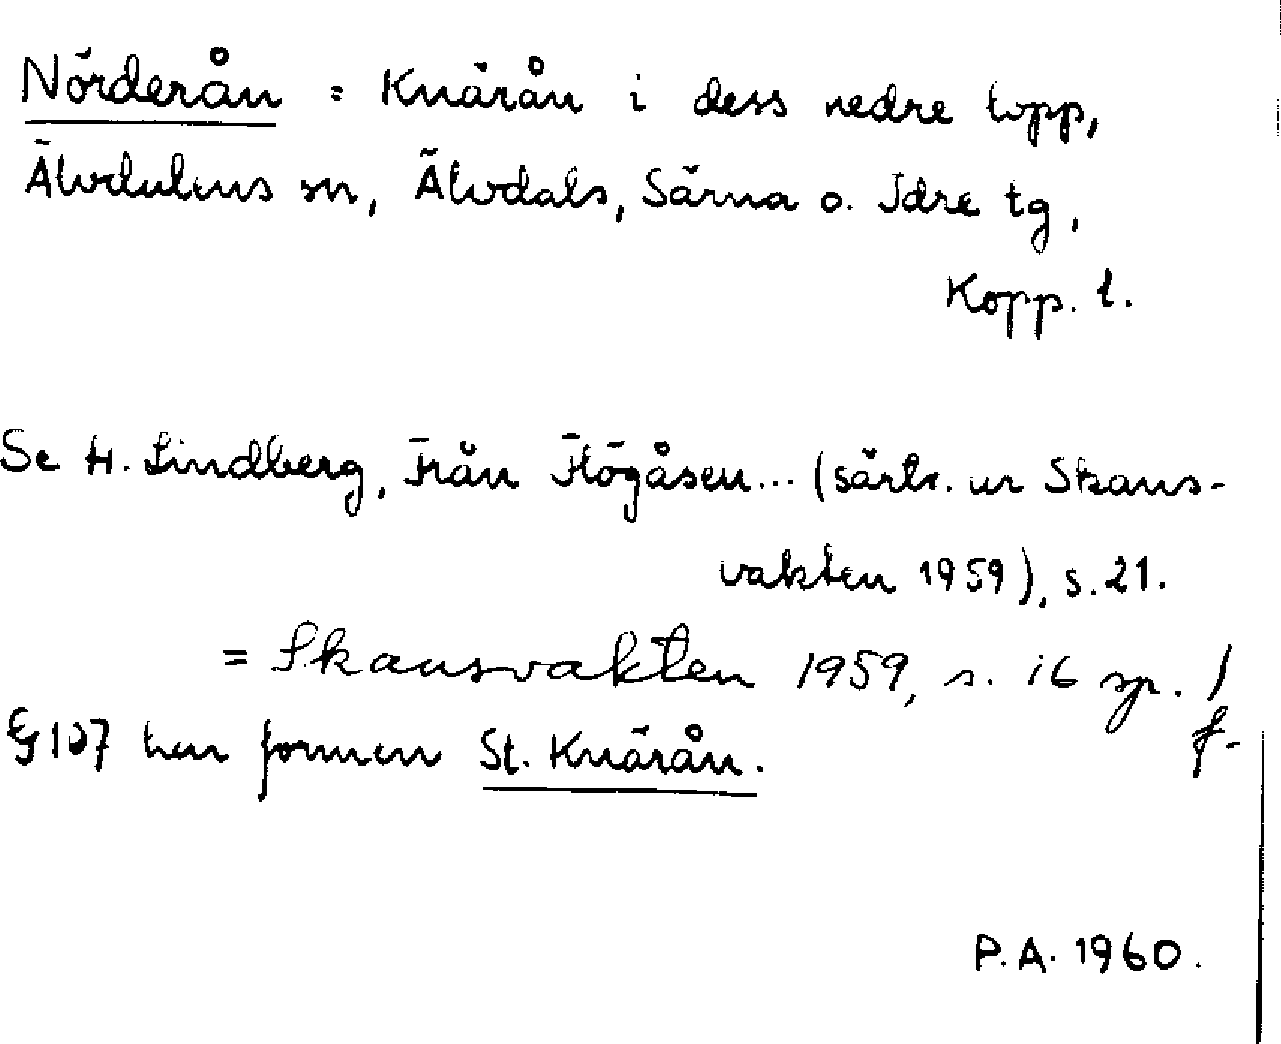 Nörderån = Knärån i dess nedre lopp,
Älvdalens sn, Älvdals, Särna o. Idre tg,
Kopp. l.
Se H. Lindberg, Från Högåsen... (särtr. ur Skans-
vakten 1959), s. 21.
= Skansvakten 1959, s. 16 sp. 1
f.
G 107 har formen St. Knärån.
P.A. 1960.